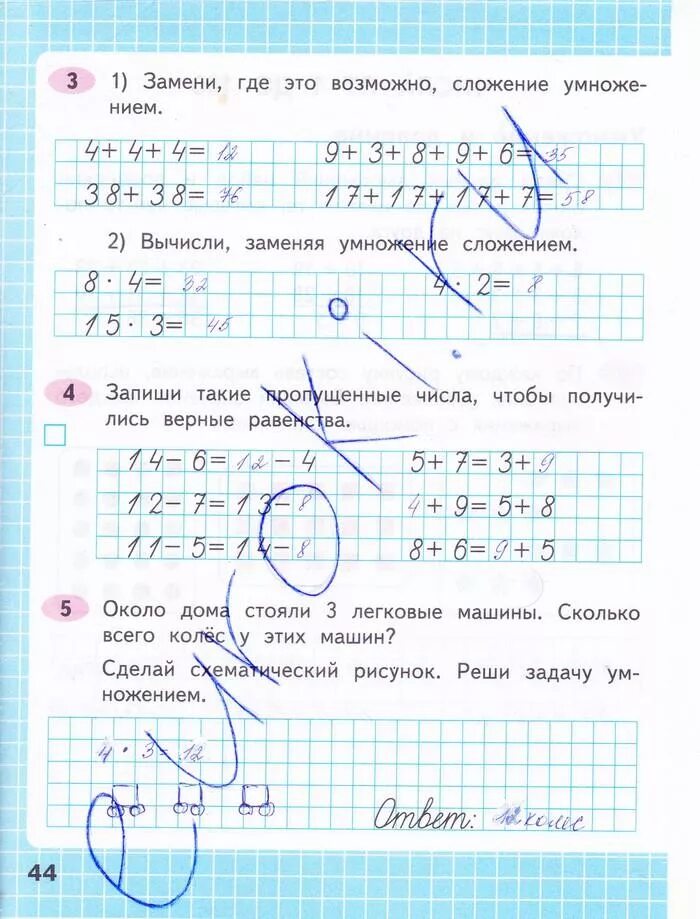 3 1) Замени, где это возможно, сложение умноже-
нием.
4+4+4=12 9+3+8+9+6=35
38+38=76 17+17+17+7=58
2) Вычисли, заменяя умножение сложением.
8·4=32 4·2=8
15·3=45
4 Запиши такие пропущенные числа, чтобы получи-
лись верные равенства.
14-6=12-4 5+7=3+9
12-7=13-8 4+9=5+8
11-5=14-8 8+6=9+5
5 Около дома стояли 3 легковые машины. Сколько
всего колёс у этих машин?
Сделай схематический рисунок. Реши задачу ум-
ножением.
4·3=12
Ответ: 12 колес
44